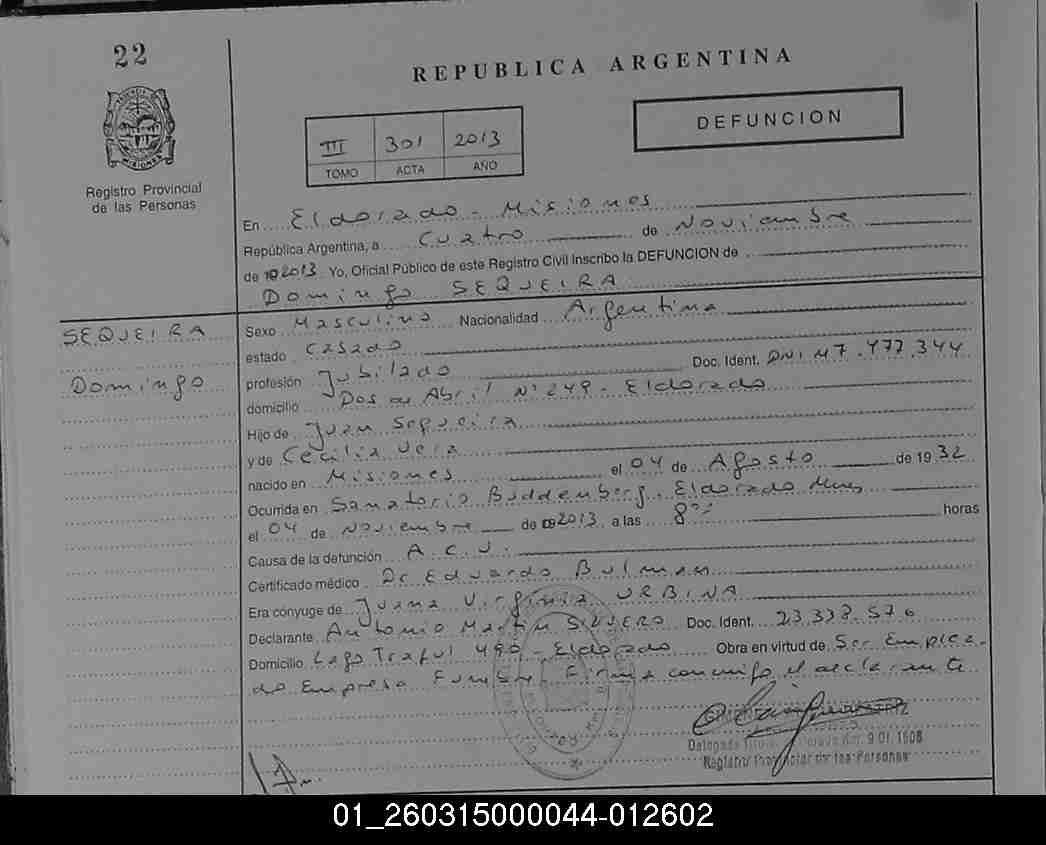 22
REPUBLICA ARGENTINA
DEFUNCION
III 301 2013
TOMO ACTA AÑO
PROVINCIA DE MISIONES
Registro Provincial
de las Personas
En Eldorado - Misiones
República Argentina, a Cuatro de Noviembre
de 2013 Yo, Oficial Público de este Registro Civil Inscribo la DEFUNCION de
Domingo SEQUEIRA
SEQUEIRA
Domingo
Sexo Masculino Nacionalidad Argentina
estado Casado
profesión Jubilado Doc. Ident. DNI M7.477.344
domicilio Dos de Abril Nº 249 - Eldorado
Hijo de Juan Sequeira
y de Cecilia Vera
nacido en Misiones el 04 de Agosto de 19 32
Ocurrida en Sanatorio Buddemberg, Eldorado Mnes
el 04 de Noviembre de 2013 a las 8 horas
Causa de la defunción A.C.V.
Certificado médico Dr Eduardo Bulman
Era cónyuge de Juana Virginia URBINA
Declarante Antonio Martin Doc. Ident. 23.338.576
Domicilio Lago Traful 490 - Eldorado Obra en virtud de Ser Emplea-
do Empresa Funebre, Firma conmigo el declarante
Registro Provincial de las Personas
01_260315000044-012602